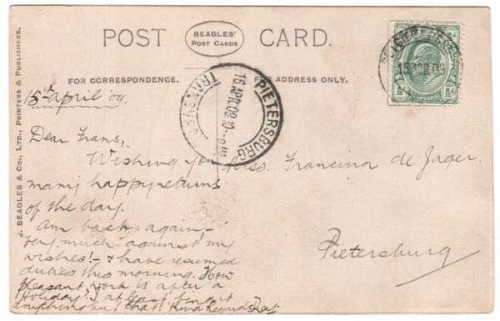 POST CARD.
BEAGLES'
POST CARDS
FOR CORRESPONDENCE.
FOR ADDRESS ONLY.
BEAGLES & CO., LTD., PRINTERS & PUBLISHERS.
PIETERSBURG
16 APR 09
TRANSVAAL
15th April 09.
Dear Frans,
Wishing you
many happy returns
of the day.
Am back again -
very much against my
wishes! - & have resumed
duties this morning. How
pleasant work is after a
holiday!
Miss. Francina de Jager.
Pietersburg